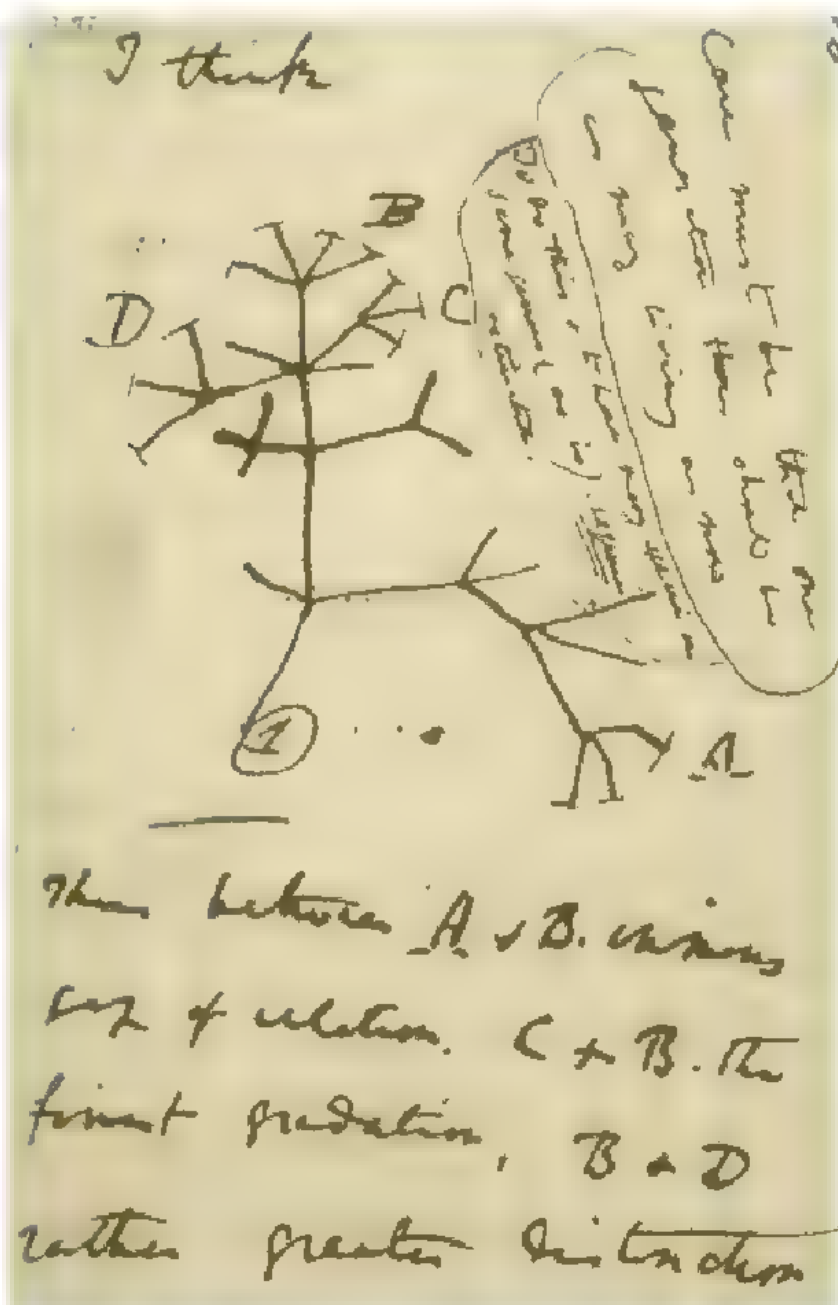 I think
Case must be that one
generation then should be
as many living as now
To do this & to have many species in
same genus (as is). requires
extinction.
B
C
D
1
A
Thus between A & B. immense
gap of relation. C & B. The
finest gradation, B & D
rather greater distinction